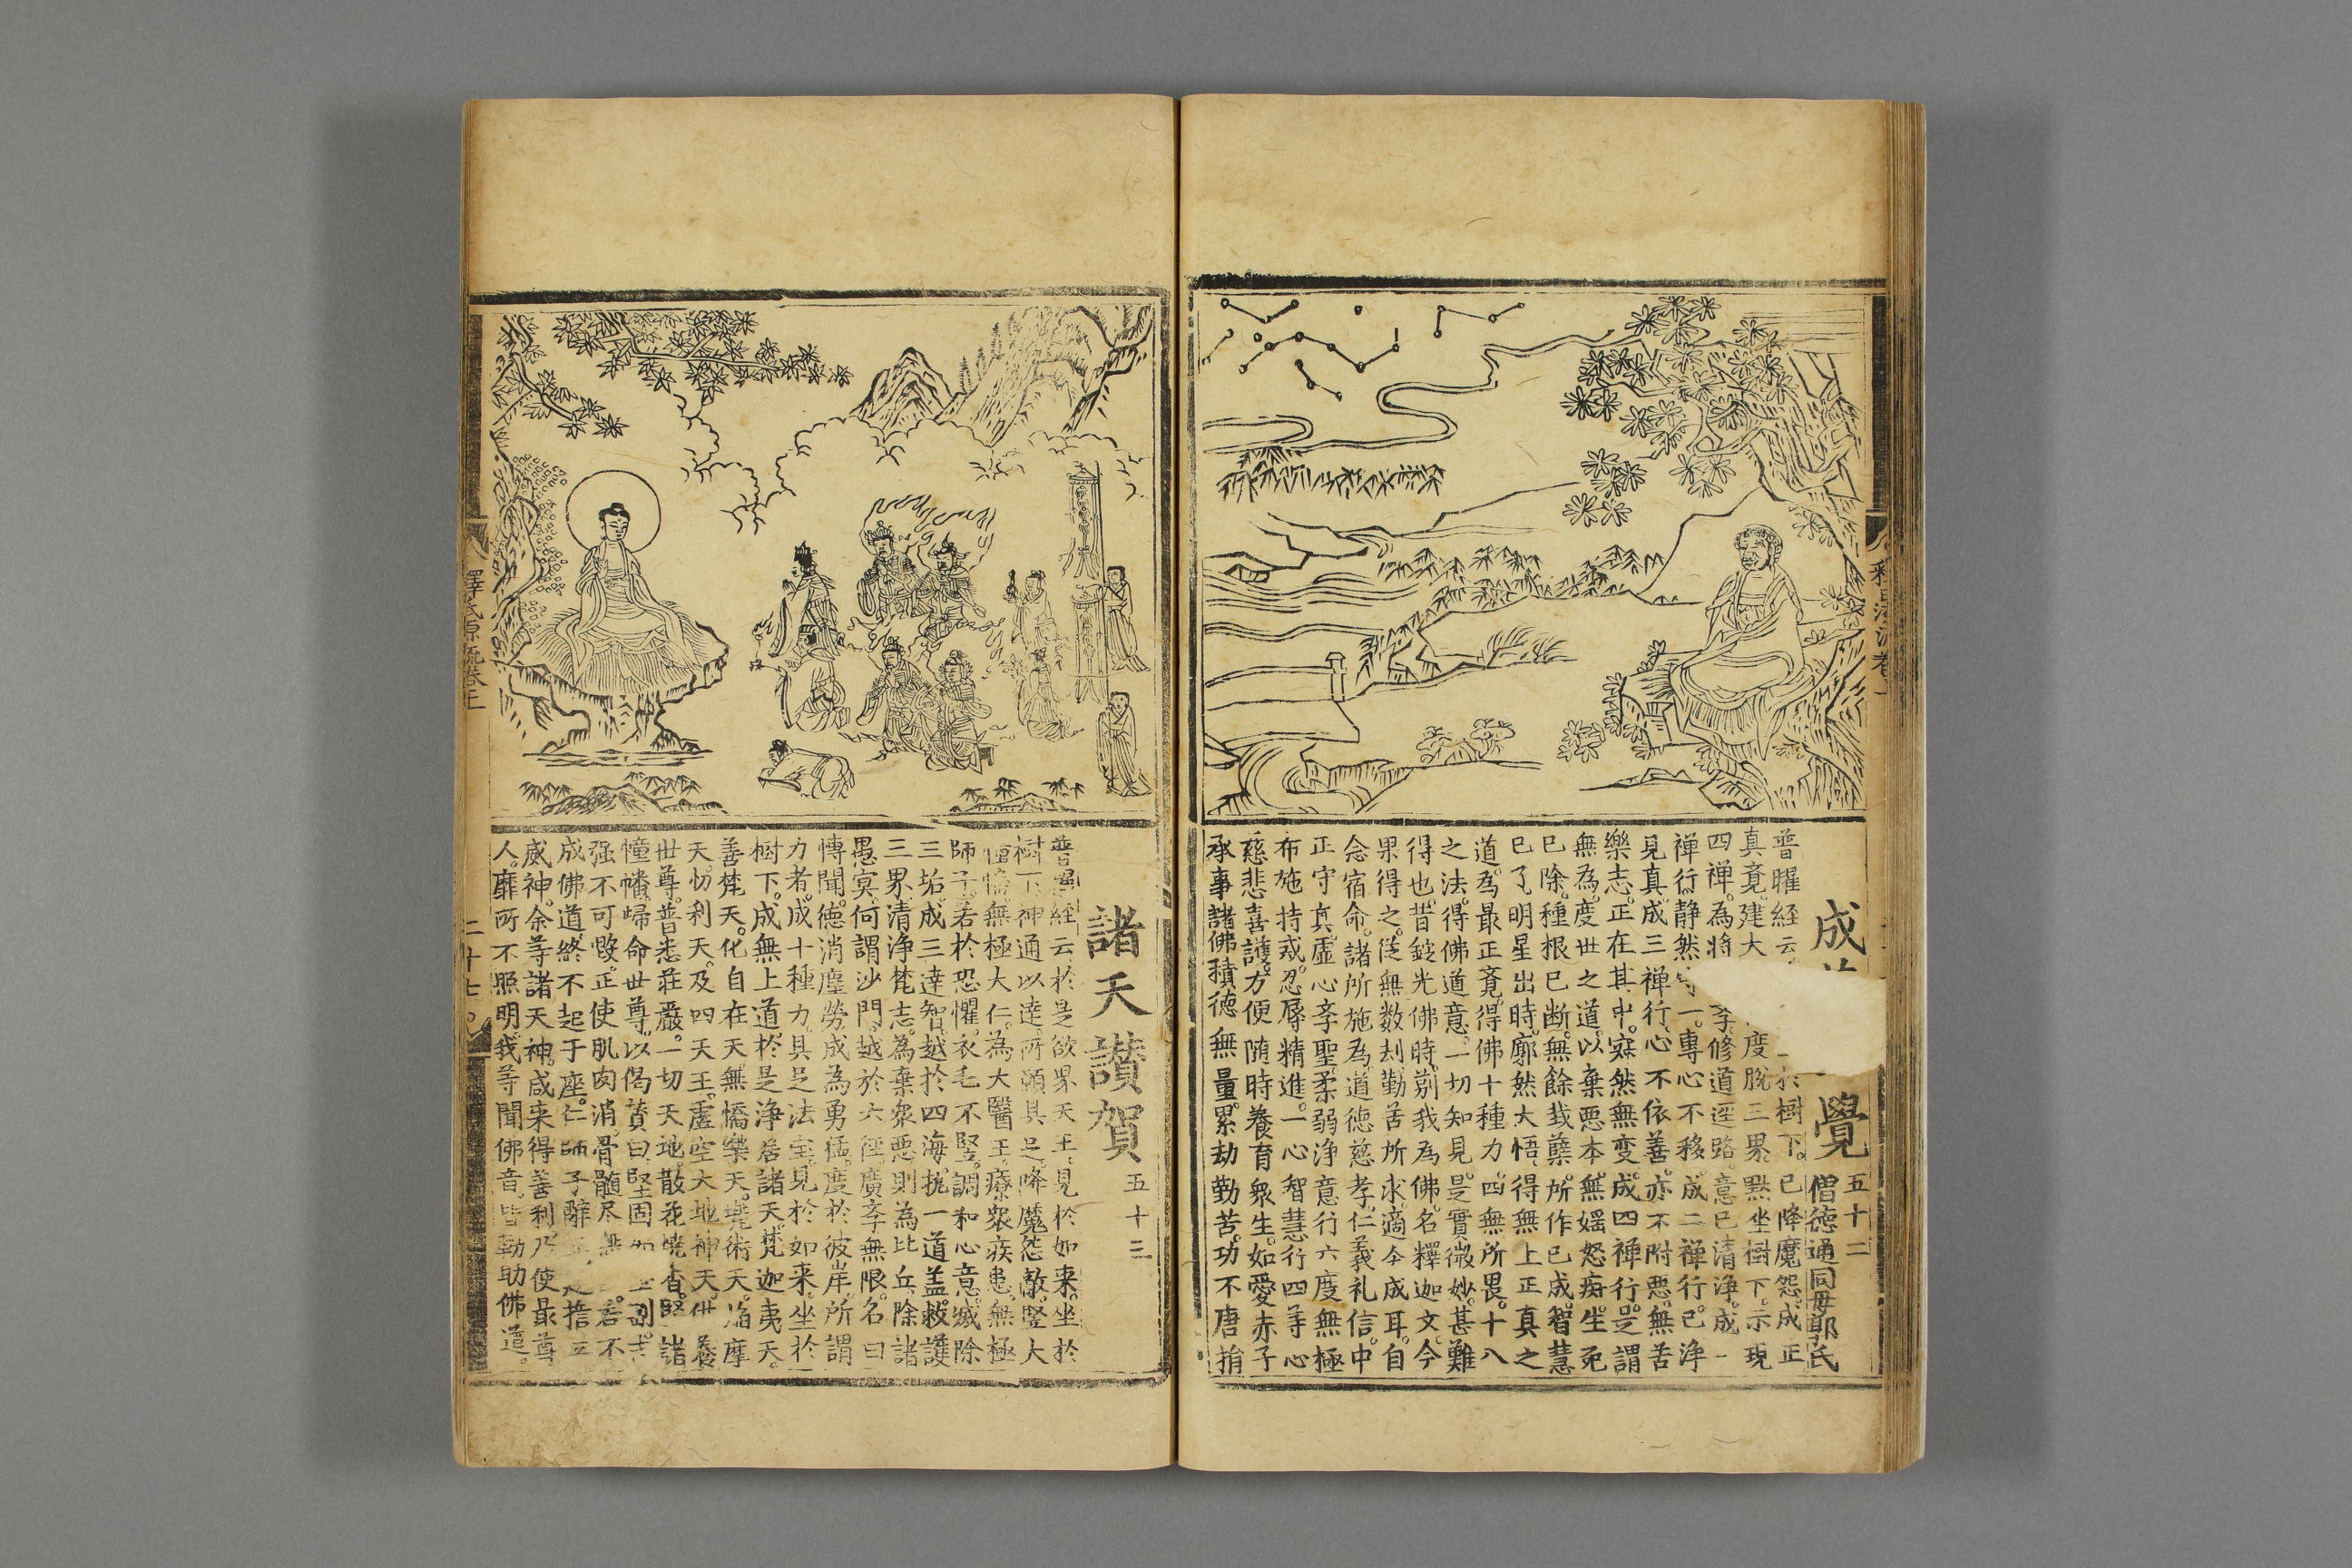 成 覺 五十二
僧德通同母郭氏
普曜經云 於樹下。已降魔怨。成正
真竟。建大 度脫三界。默坐樹下。示現
四禪。為將 孝修道逕路。意已清淨。成一
禪行。静然 一。專心不移。成二禪行。已淨
見真。成三禪行。心不依善。亦不附悪。無苦
樂志。正在其中。寂然無变。成四禪行。是謂
無為。度世之道。以棄悪本。無婬怒痴。生死
已除。種根已断。無餘栽蘖。所作已成。智慧
已了。明星出時。廓然大悟。得無上正真之
道。為最正竟。得佛十種力。四無所畏。十八
之法。得佛道意。一切知見。是實微妙。甚難
得也。昔錠光佛時。莂我為佛。名釋迦文。今
果得之。從無数刦。勤苦所求。適今成耳。自
念宿命。諸所施為。道德慈孝。仁義礼信。中
正守真。虛心孝聖。柔弱淨意。行六度無極
布施持戒。忍辱精進。一心智慧。行四等心
慈悲喜護。方便随時。養育衆生。如愛赤子
承事諸佛。積德無量。累劫勤苦。功不唐捐
諸天讃賀 五十三
普曜經云。於是欲界天王。見於如来。坐於
樹下。神通以達。所願具足。降魔怨敵。竪大
幢幡。無極大仁。為大醫王。療衆疾患。無極
師子。若於恐懼。衣毛不竪。調和心意。滅除
三垢。成三達智。越於四海。執一道盖。救護
三界。清淨梵志。為棄衆悪。則為比丘。除諸
愚冥。何謂沙門。越於六徑。廣孝無限。名曰
博聞。德消塵勞。成為勇猛。度於彼岸。所謂
力者。成十種力。具足法宝。見於如来。坐於
樹下。成無上道。於是浄居諸天。梵迦夷天。
善梵天。化自在天。無憍樂天。兜術天。焰摩
天。忉利天。及四天王。虛空大地神天。供養
世尊。普悉莊嚴。一切天地。散花燒香。竪諸
幢幡。歸命世尊。以偈賛曰。堅固如 剛。志
强不可毁。正使肌肉消。骨髓尽無 。若不
成佛道。終不起于座。仁師子離 捨五
威神。余等諸天神。咸来得善利。乃使最尊
人。靡所不照明。我等聞佛音。皆勸助佛道。
釋氏源流卷上
二十七